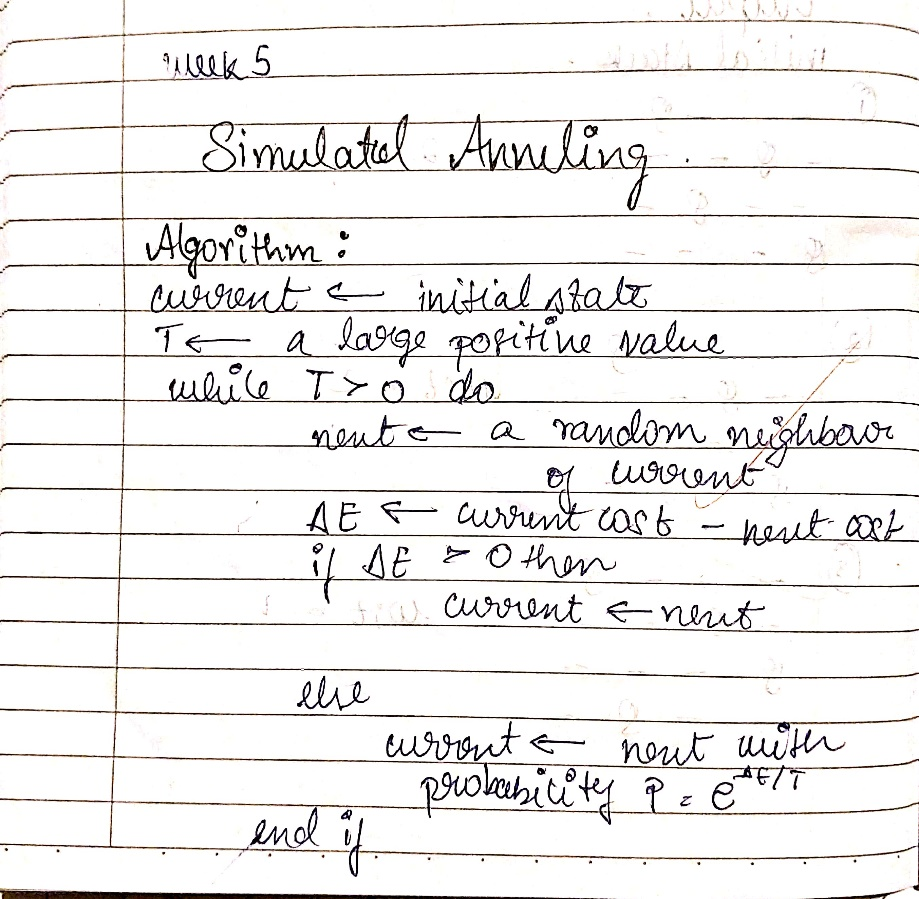 week 5
Simulated Anneling.
Algorithm :
current ← initial state
T ← a large positive value
while T > 0 do
next ← a random neighbour
of current
ΔE ← current cost - next cost
if ΔE > 0 then
current ← next
else
current ← next with
probability P = e^ΔE/T
end if